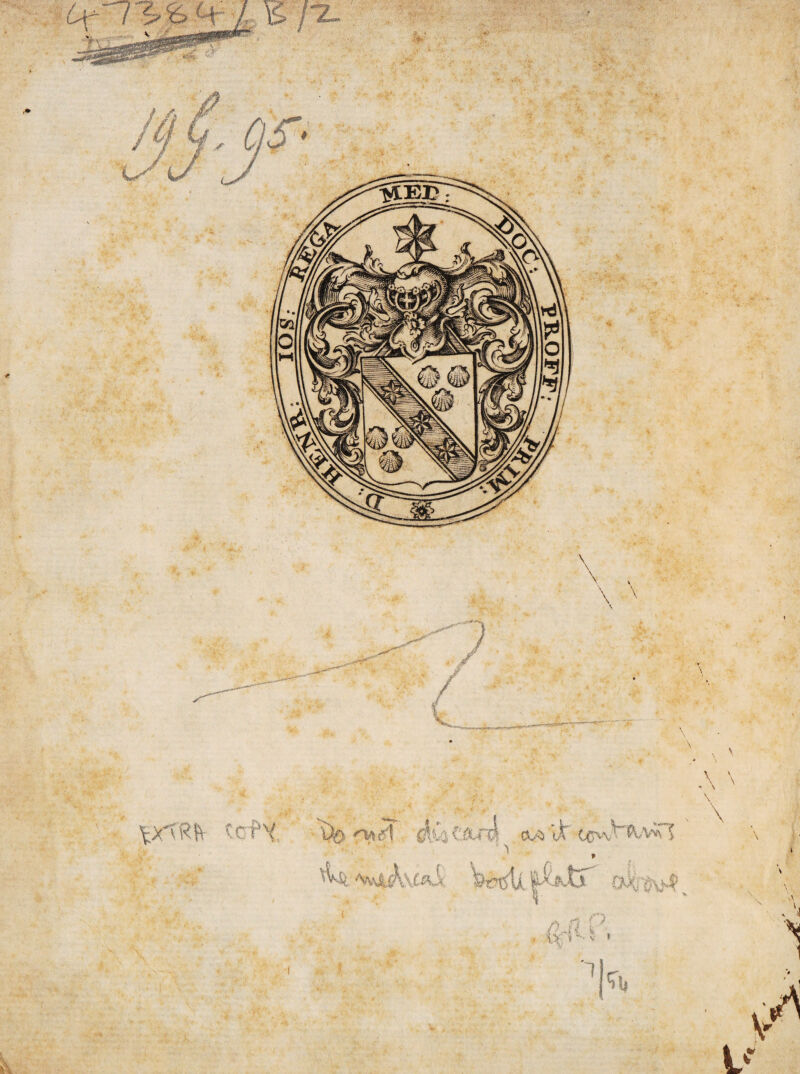 47384/B/2
19 G. 95.
D: HENR: IOS: REGA MED: DOC: PROFF: PRIM:
EXTRA COPY. Do not discard, as it contains
the medical bookplate above.
7/54